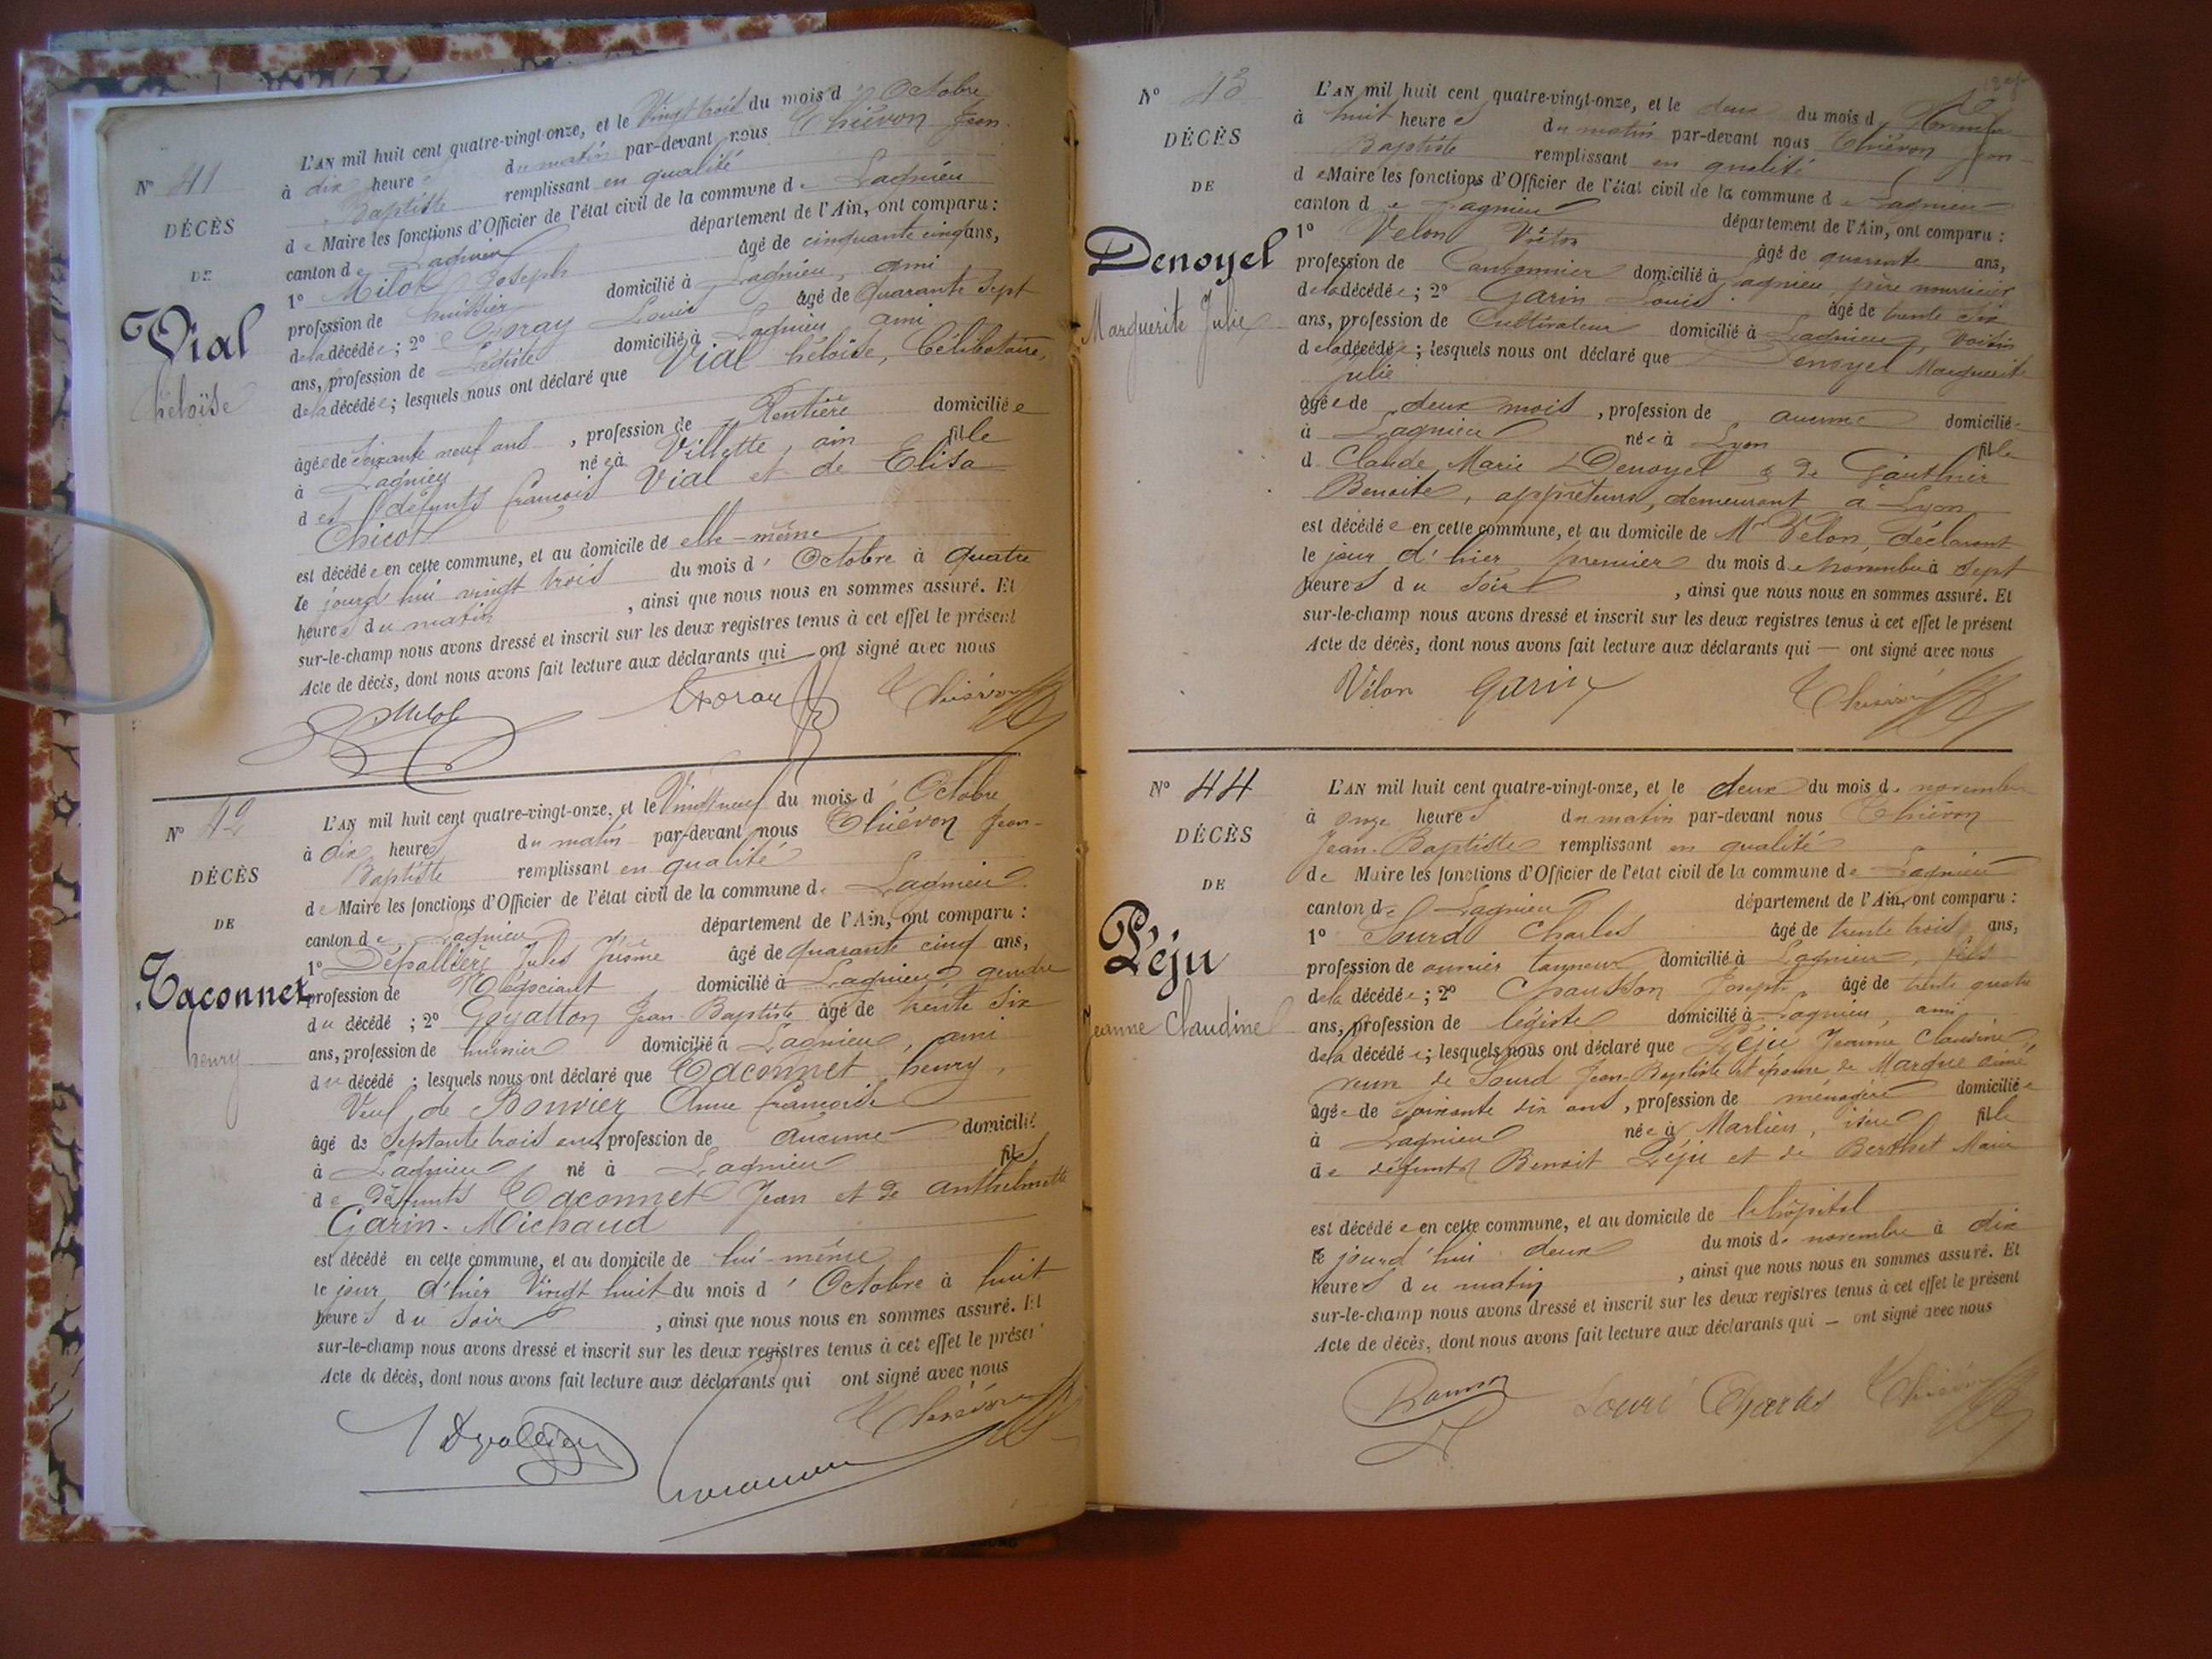 N° 41
DÉCÈS
DE
Vial
héloïse
L'AN mil huit cent quatre-vingt-onze, et le Vingt trois du mois d' Octobre
à dix heures du matin par-devant nous Thiévon Jean-
Baptiste remplissant en qualité
de Maire les fonctions d'Officier de l'état civil de la commune de Lagnieu
canton de Lagnieu département de l'Ain, ont comparu :
1° Milok Joseph âgé de cinquante cinq ans,
profession de huissier domicilié à Lagnieu, ami
de la décédée ; 2° Louis âgé de Quarante Sept
ans, profession de Légiste domicilié à Lagnieu ami
de la décédée ; lesquels nous ont déclaré que Vial héloïse, Célibataire,
âgée de soixante neuf ans , profession de Rentière domiciliée
à Lagnieu née à Villette, ain fille
des défunts françois Vial et de Elisa
Chicot
est décédée en cette commune, et au domicile de elle-même
le jourd'hui vingt trois du mois d' Octobre à quatre
heures du matin , ainsi que nous nous en sommes assuré. Et
sur-le-champ nous avons dressé et inscrit sur les deux registres tenus à cet effet le présent
Acte de décès, dont nous avons fait lecture aux déclarants qui — ont signé avec nous
Thiévon
N° 42
DÉCÈS
DE
Taconnet
henry
L'AN mil huit cent quatre-vingt-onze, et le Vingt neuf du mois d' Octobre
à dix heures du matin par-devant nous Thiévon Jean-
Baptiste remplissant en qualité
de Maire les fonctions d'Officier de l'état civil de la commune de Lagnieu
canton de Lagnieu département de l'Ain, ont comparu :
1° Dépallière Jules Jérôme âgé de quarante cinq ans,
profession de Négociant domicilié à Lagnieu gendre
du décédé ; 2° Goyatton Jean-Baptiste âgé de trente six
ans, profession de domicilié à Lagnieu, ami
du décédé ; lesquels nous ont déclaré que Taconnet henry,
Veuf de Bouvier Anne françoise
âgé de Septante trois ans, profession de aucune domicilié
à Lagnieu né à Lagnieu fils
de défunts Taconnet Jean et de anthelmette
Garin-Michaud
est décédé en cette commune, et au domicile de lui-même
le jour d'hier Vingt huit du mois d' Octobre à huit
heures du Soir , ainsi que nous nous en sommes assuré. Et
sur-le-champ nous avons dressé et inscrit sur les deux registres tenus à cet effet le présent
Acte de décès, dont nous avons fait lecture aux déclarants qui ont signé avec nous
Thiévon
N° 43
DÉCÈS
DE
Denoyel
Marguerite Julie
L'AN mil huit cent quatre-vingt-onze, et le deux du mois de Novembre
à huit heures du matin par-devant nous Thiévon Jean-
Baptiste remplissant en qualité
de Maire les fonctions d'Officier de l'état civil de la commune de Lagnieu
canton de Lagnieu département de l'Ain, ont comparu :
1° Velon âgé de quarante ans,
profession de Cantonnier domicilié à Lagnieu père nourricier
de la décédée ; 2° Garin Louis âgé de trente six
ans, profession de Cultivateur domicilié à Lagnieu, voisin
de la décédée ; lesquels nous ont déclaré que Denoyel Marguerite
Julie
âgée de deux mois , profession de aucune domiciliée
à Lagnieu née à Lyon fille
d Claude Marie Denoyel & de Gauthier
Benoite, apprêteurs, demeurant à Lyon
est décédée en cette commune, et au domicile de Mr Velon, déclarant
le jour d'hier premier du mois de Novembre à Sept
heures du Soir , ainsi que nous nous en sommes assuré. Et
sur-le-champ nous avons dressé et inscrit sur les deux registres tenus à cet effet le présent
Acte de décès, dont nous avons fait lecture aux déclarants qui — ont signé avec nous
Vélon Garin Thiévon
N° 44
DÉCÈS
DE
Péju
Jeanne Claudine
L'AN mil huit cent quatre-vingt-onze, et le deux du mois de novembre
à onze heures du matin par-devant nous Thiévon
Jean-Baptiste remplissant en qualité
de Maire les fonctions d'Officier de l'état civil de la commune de Lagnieu
canton de Lagnieu département de l'Ain, ont comparu :
1° Sourd Charles âgé de trente trois ans,
profession de ouvrier tanneur domicilié à Lagnieu, fils
de la décédée ; 2° Chausson Joseph âgé de trente quatre
ans, profession de légiste domicilié à Lagnieu, ami
de la décédée ; lesquels nous ont déclaré que Péju Jeanne Claudine,
veuve de Sourd Jean-Baptiste et épouse de Marque aimé
âgée de soixante dix ans , profession de ménagère domiciliée
à Lagnieu née à Marlieu, isère fille
de défunts Benoit Péju et de Berthet Marie
est décédée en cette commune, et au domicile de l'hôpital
le jourd'hui deux du mois de novembre à dix
heures du matin , ainsi que nous nous en sommes assuré. Et
sur-le-champ nous avons dressé et inscrit sur les deux registres tenus à cet effet le présent
Acte de décès, dont nous avons fait lecture aux déclarants qui — ont signé avec nous
Charles Thiévon